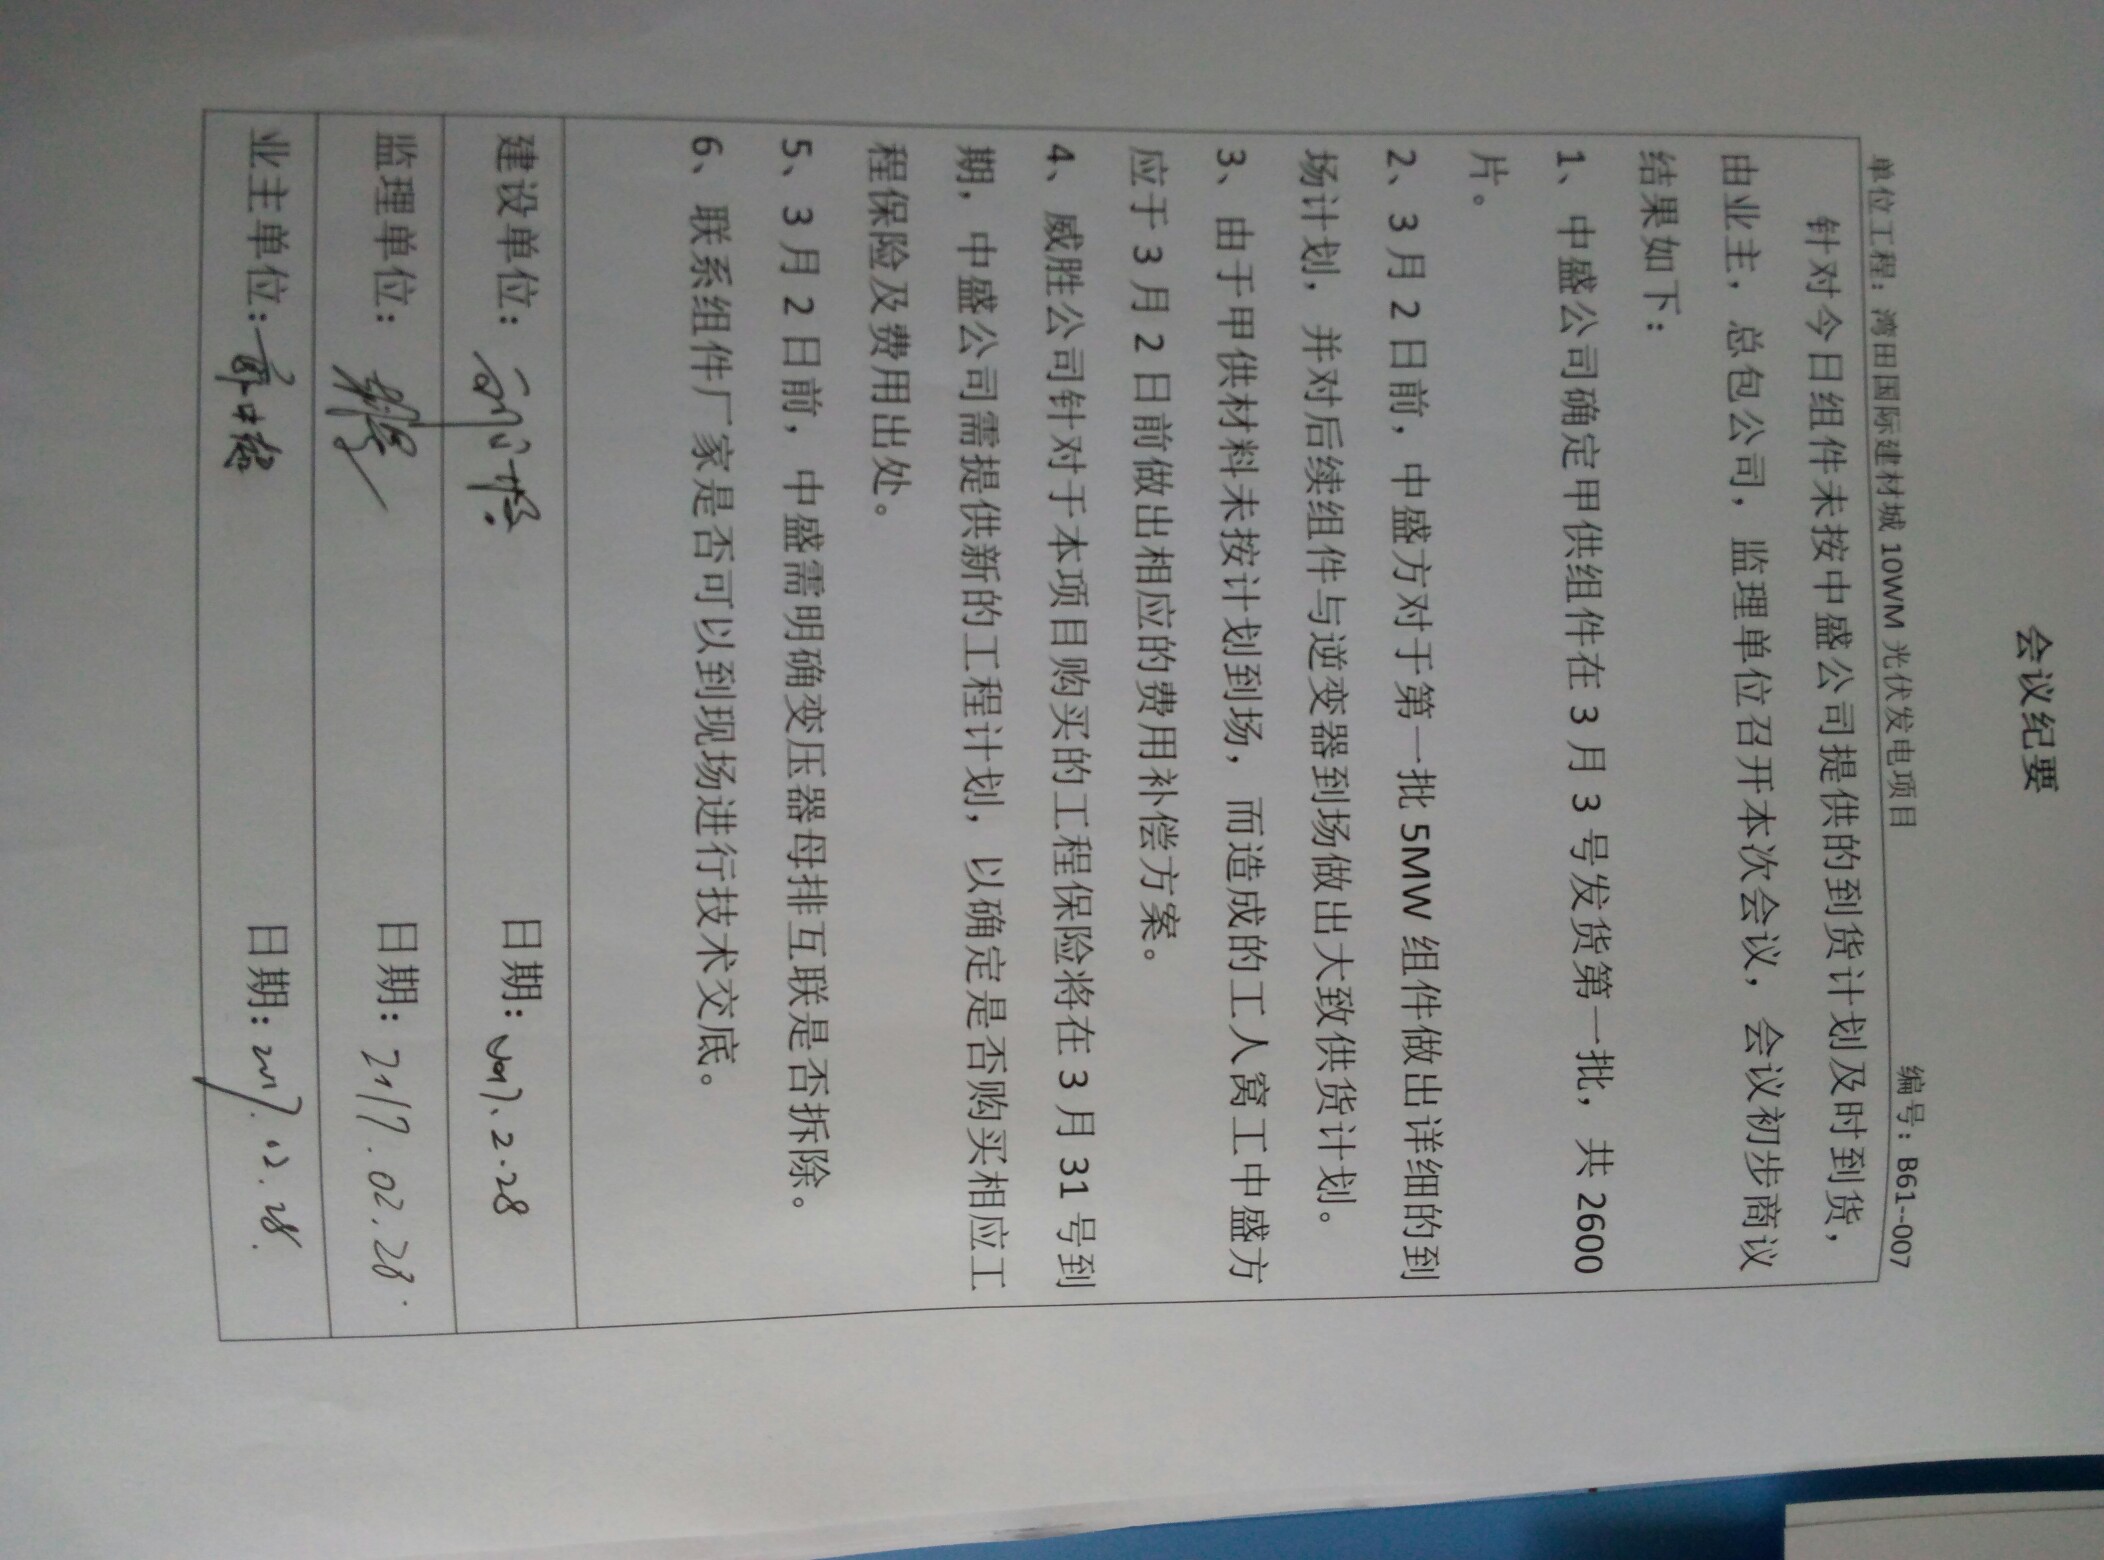 会议纪要
单位工程：湾田国际建材城 10WM 光伏发电项目 编号：B61--007
针对今日组件未按中盛公司提供的到货计划及时到货，
由业主，总包公司，监理单位召开本次会议，会议初步商议
结果如下：
1、中盛公司确定甲供组件在 3 月 3 号发货第一批，共 2600
片。
2、3 月 2 日前，中盛方对于第一批 5MW 组件做出详细的到
场计划，并对后续组件与逆变器到场做出大致供货计划。
3、由于甲供材料未按计划到场，而造成的工人窝工中盛方
应于 3 月 2 日前做出相应的费用补偿方案。
4、威胜公司针对于本项目购买的工程保险将在 3 月 31 号到
期，中盛公司需提供新的工程计划，以确定是否购买相应工
程保险及费用出处。
5、3 月 2 日前，中盛需明确变压器母排互联是否拆除。
6、联系组件厂家是否可以到现场进行技术交底。
建设单位： 日期：2017.2.28
监理单位： 日期：2017.02.28.
业主单位： 日期：2017.02.28.